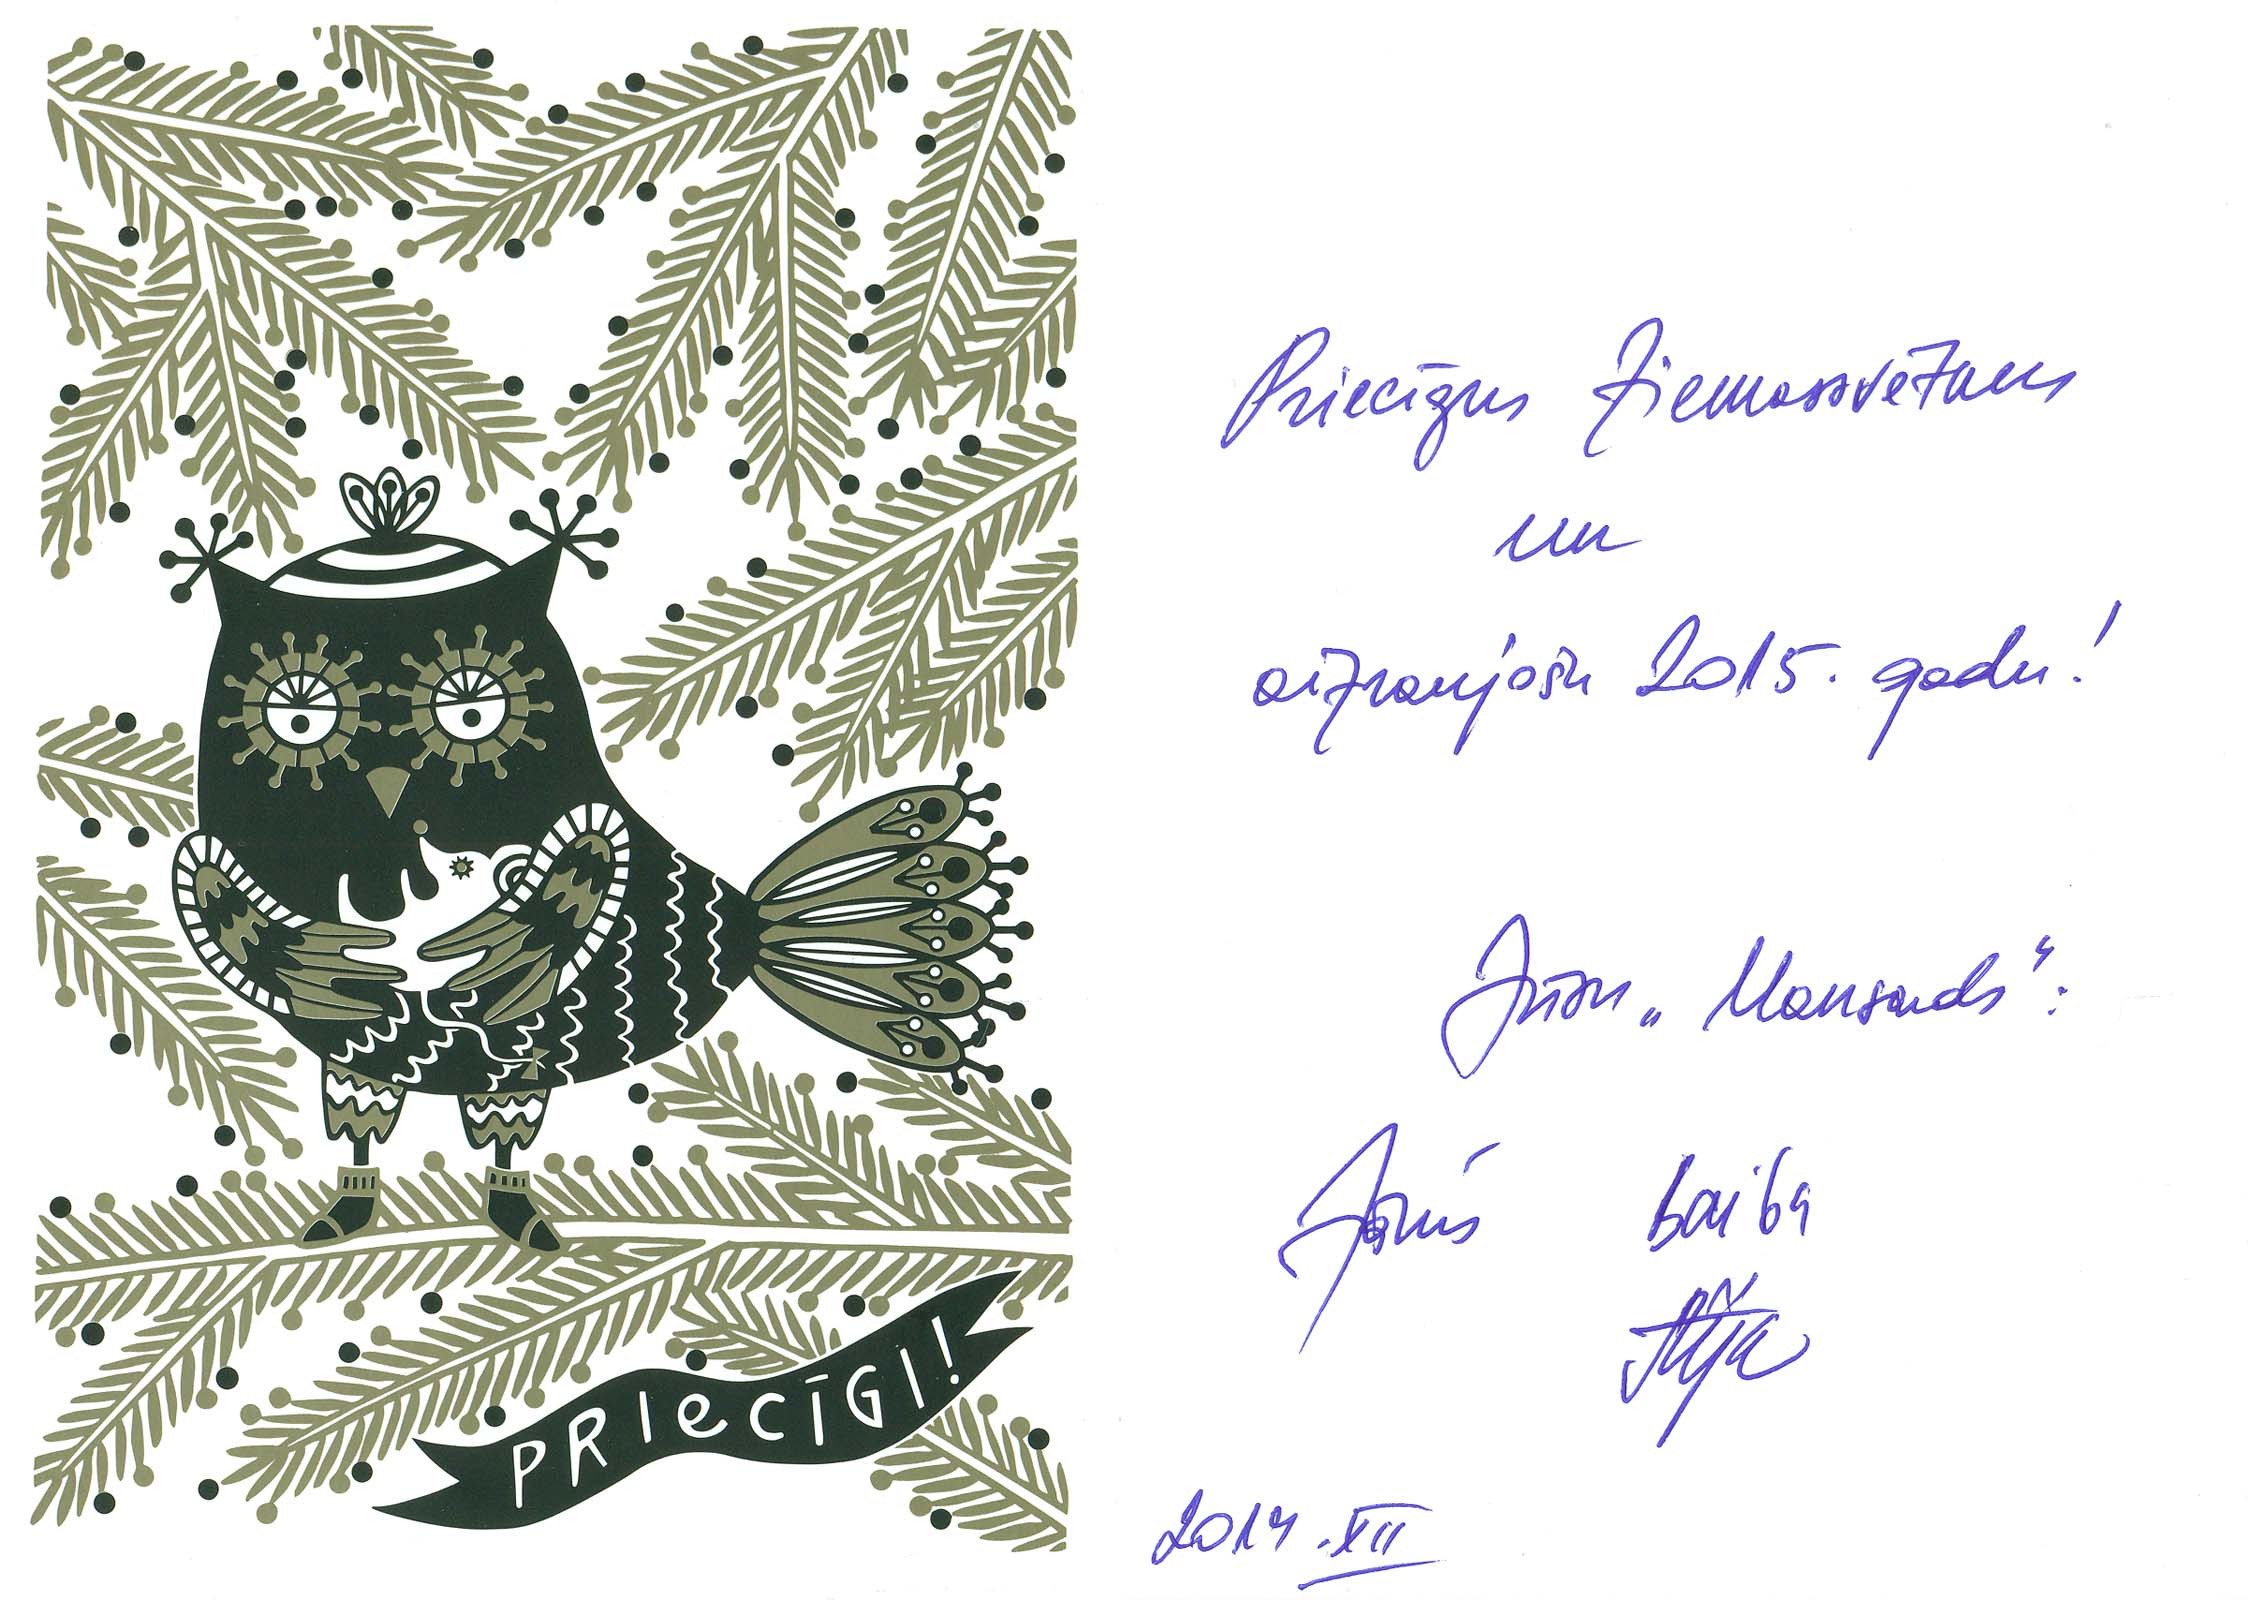 PRIECĪGI!
Priecīgus Ziemassvētkus
un
aizraujošu 2015. gadu!
Jūsu „Mansards“:
Jānis Baiba
2014.XII